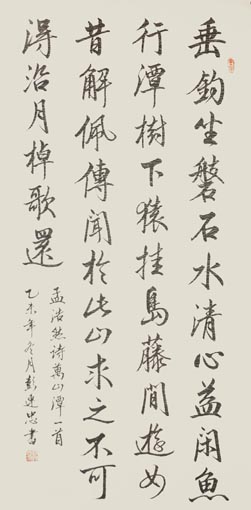 垂釣坐磐石水清心益闲魚
行潭樹下猿挂島藤間遊女
昔解佩傳聞於此山求之不可
得沿月棹歌還
孟浩然诗萬山潭一首
乙未年冬月彭忠書